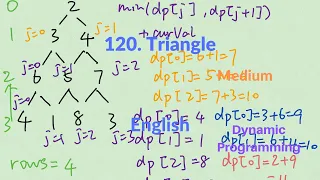 0
2
min(dp[j], dp[j+1])
+ curVal
1
j=0
3
4
j=1
120. Triangle
dp[0]=6+1=7
2
j=0
6
5
7
j=2
dp[1]=5
Medium
dp[2]=7+3=10
3
j=0
4
1
8
3
j=1
j=2
j=3
dp[0]=4
dp[0]=3+6=9
English
dp[1]=1
Dynamic
dp[2]=8
Programming
=10
rows=4
dp[0]=2+9